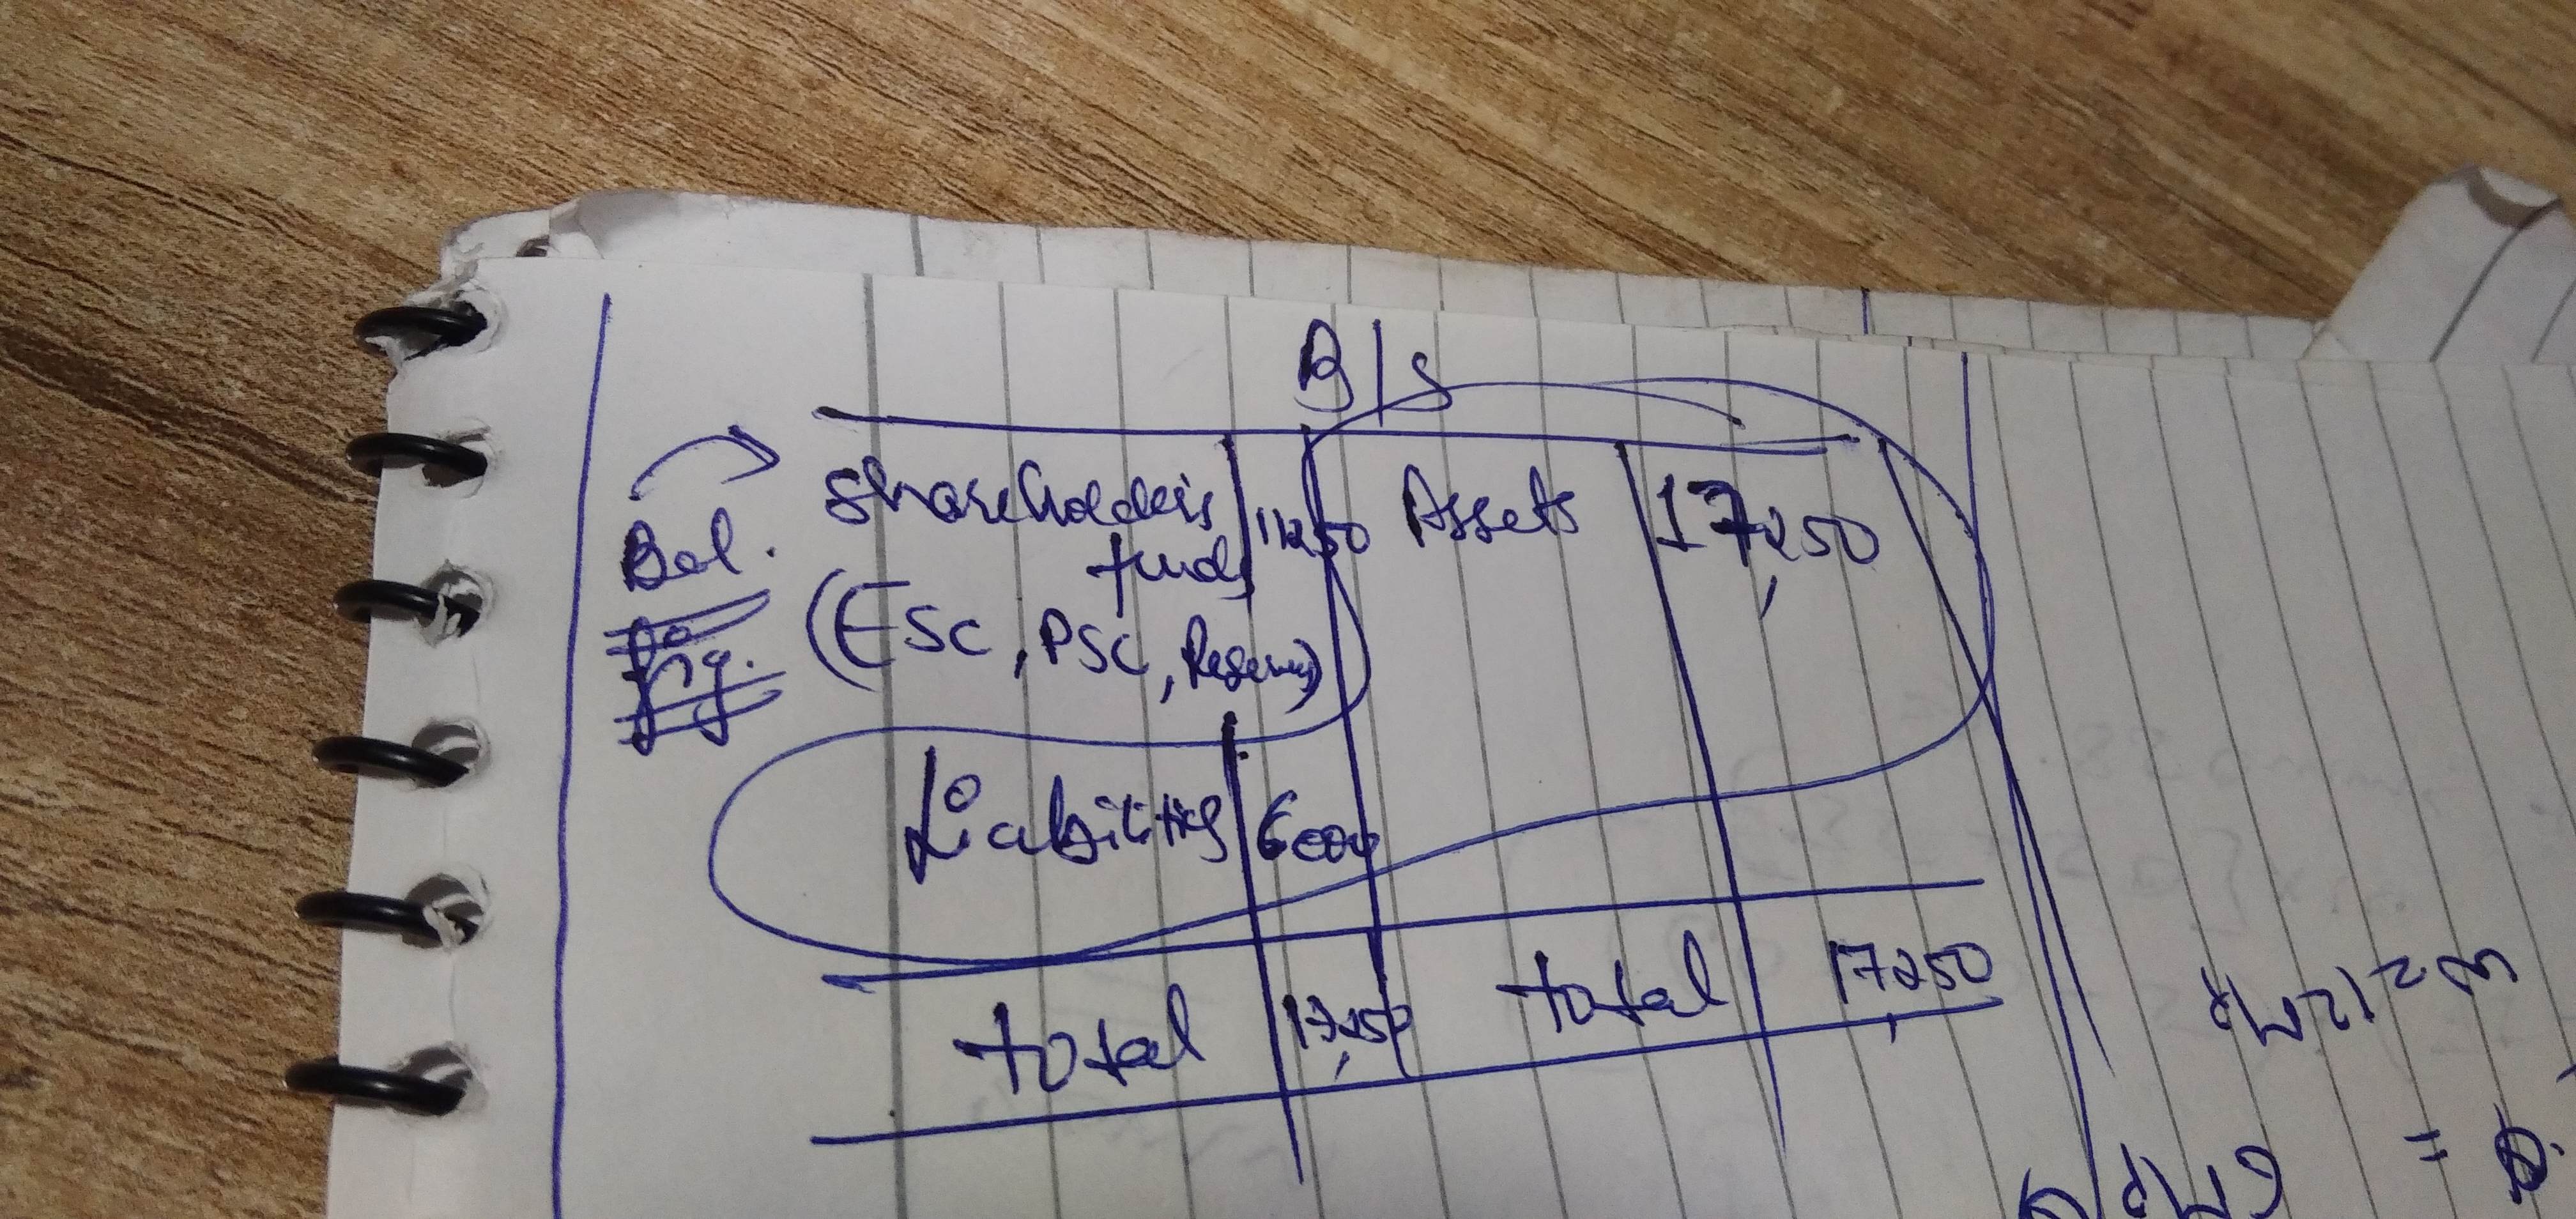 B/S
Shareholders 11250 Assets 17,250
funds
Bal.
fig.
(ESC, PSC, Reserves)
Liabilities 6000
total 17,250 total 17,250